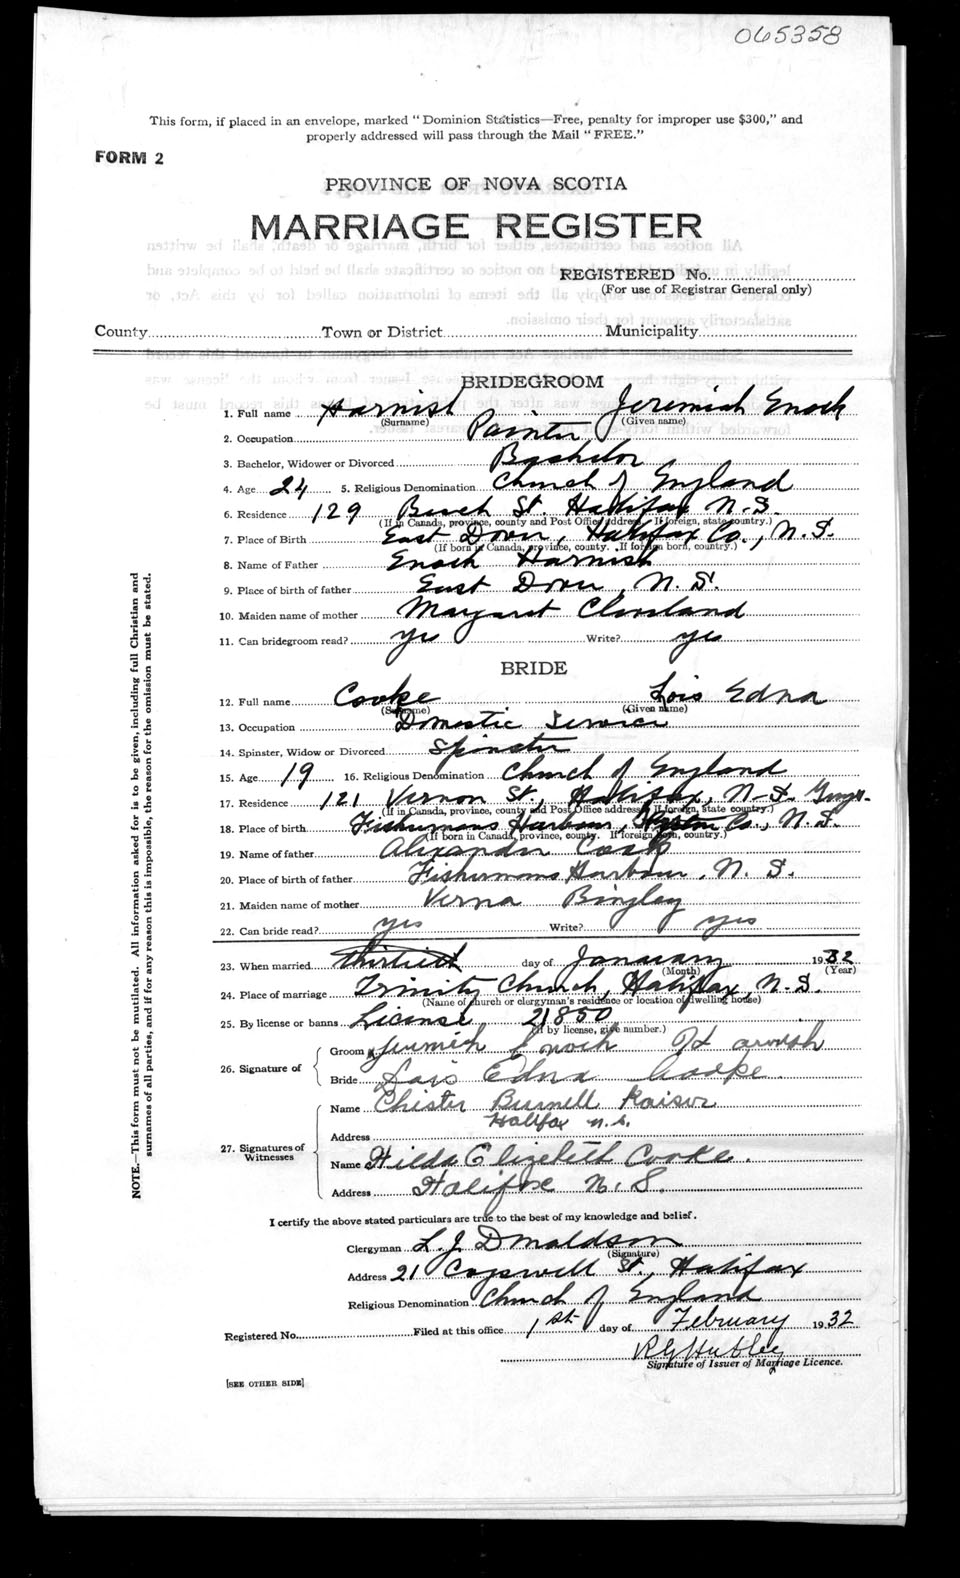 065358
This form, if placed in an envelope, marked "Dominion Statistics—Free, penalty for improper use $300," and
properly addressed will pass through the Mail "FREE."
FORM 2
PROVINCE OF NOVA SCOTIA
MARRIAGE REGISTER
REGISTERED No.
(For use of Registrar General only)
County Town or District Municipality
BRIDEGROOM
1. Full name Harnish Jeremiah Enoch
(Surname) (Given name)
2. Occupation Painter
3. Bachelor, Widower or Divorced Bachelor
4. Age 24 5. Religious Denomination Church of England
6. Residence 129 St. Halifax N.S.
(If in Canada, province, county and Post Office address. If foreign, state country.)
7. Place of Birth East Dover, Halifax Co., N.S.
(If born in Canada, province, county. If foreign born, country.)
8. Name of Father Enoch Harnish
9. Place of birth of father East Dover, N.S.
10. Maiden name of mother Margaret Cleveland
11. Can bridegroom read? yes Write? yes
BRIDE
12. Full name Cooke Lois Edna
(Surname) (Given name)
13. Occupation Domestic Service
14. Spinster, Widow or Divorced Spinster
15. Age 19 16. Religious Denomination Church of England
17. Residence 121 Vernon St., Halifax, N.S.
(If in Canada, province, county and Post Office address. If foreign, state country.)
18. Place of birth Fishermans Harbour, Co., N.S.
(If born in Canada, province, county. If foreign born, country.)
19. Name of father Alexander Cooke
20. Place of birth of father Fishermans Harbour, N.S.
21. Maiden name of mother Verna Bingley
22. Can bride read? yes Write? yes
23. When married thirtieth day of January 1932
(Month) (Year)
24. Place of marriage Trinity Church, Halifax, N.S.
(Name of church or clergyman's residence or location of dwelling house)
25. By license or banns License 21850
(If by license, give number.)
26. Signature of
Groom Jeremiah Enoch Harnish
Bride Lois Edna Cooke
27. Signatures of Witnesses
Name Chester Burnell Kaiser
Halifax N.S.
Address
Name Hilda Elizebeth Cooke.
Address Halifax N.S.
I certify the above stated particulars are true to the best of my knowledge and belief.
Clergyman L. J. Donaldson
(Signature)
Address 21 Cogswell St., Halifax
Religious Denomination Church of England
Registered No. Filed at this office 1st day of February 1932
R G Hubley
Signature of Issuer of Marriage Licence.
[SEE OTHER SIDE]
NOTE.—This form must not be mutilated. All information asked for is to be given, including full Christian and
surnames of all parties, and if for any reason this is impossible, the reason for the omission must be stated.